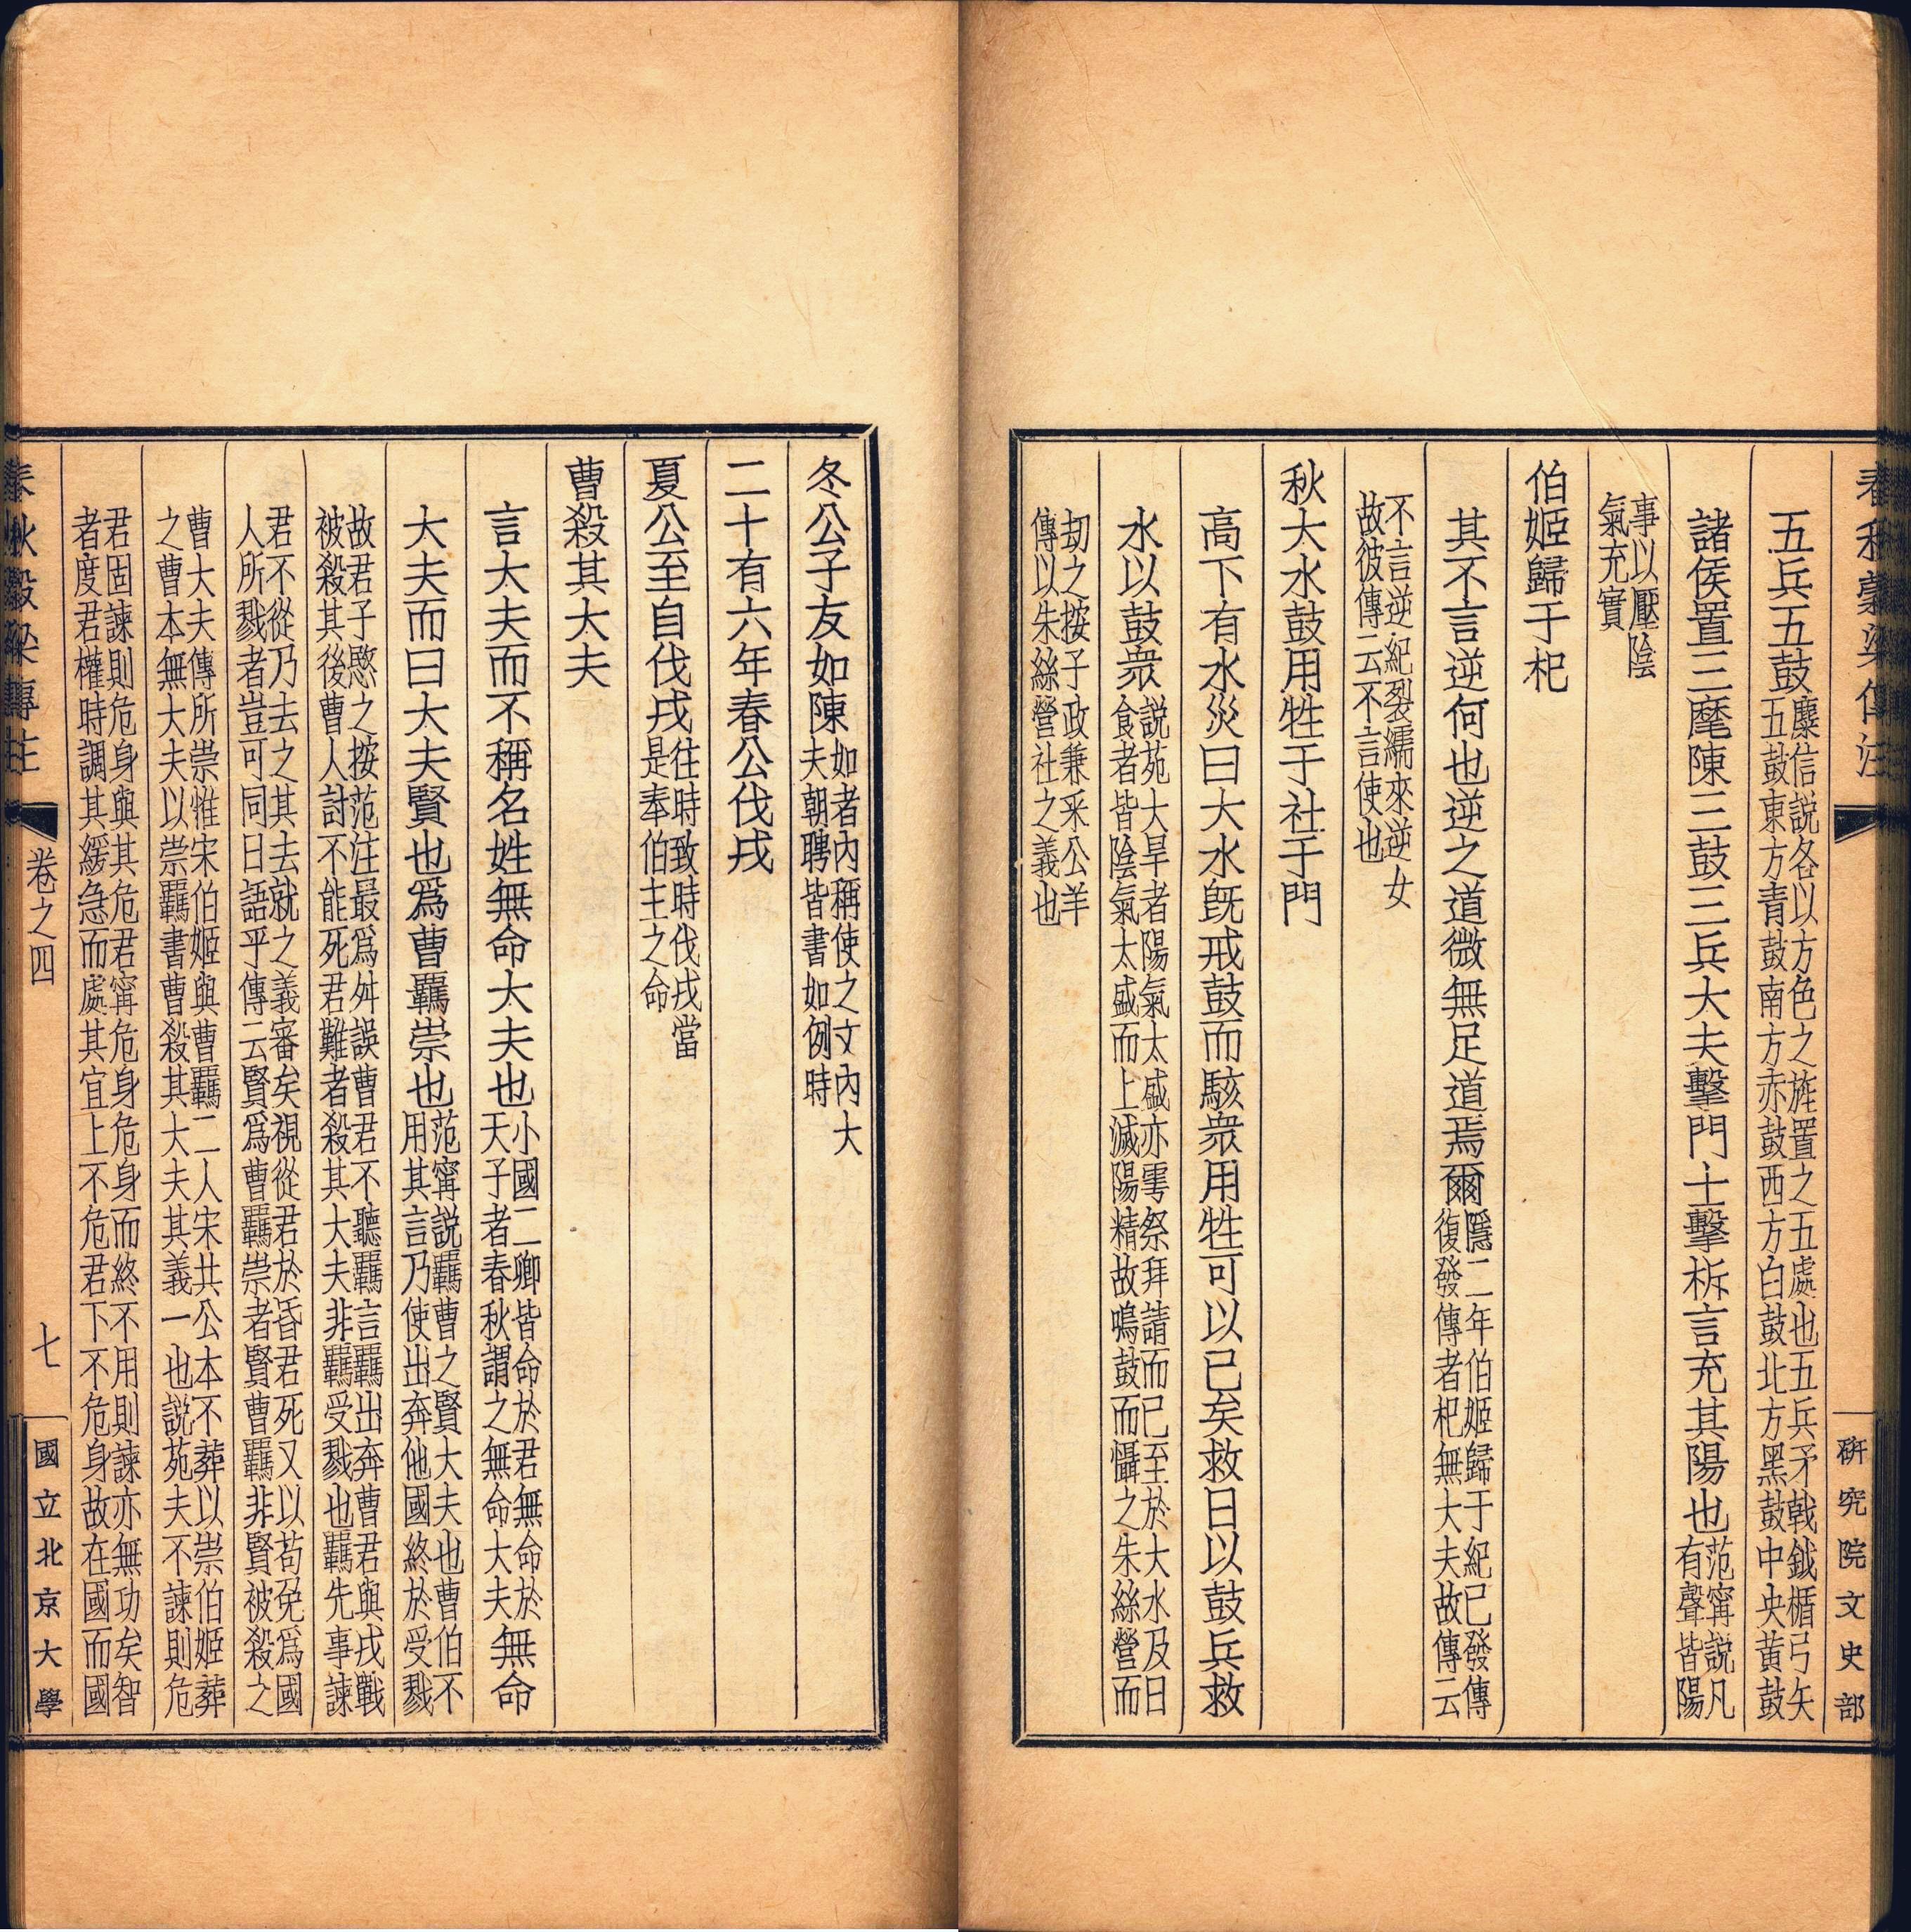 春秋穀梁傳注
研究院文史部
五兵五鼓麋信說各以方色之旌置之五處也五兵矛戟鉞楯弓矢
五鼓東方青鼓南方赤鼓西方白鼓北方黑鼓中央黃鼓
諸侯置三麾陳三鼓三兵大夫擊門士擊柝言充其陽也范甯說凡
有聲皆陽
事以壓陰
氣充實
伯姬歸于杞
其不言逆何也逆之道微無足道焉爾隱二年伯姬歸于紀已發傳
復發傳者杞無大夫故傳云
不言逆紀裂繻來逆女
故彼傳云不言使也
秋大水鼓用牲于社于門
高下有水災曰大水旣戒鼓而駭衆用牲可以已矣救日以鼓兵救
水以鼓衆說苑大旱者陽氣太盛亦雩祭拜請而已至於大水及日
食者皆陰氣太盛而上滅陽精故鳴鼓而懾之朱絲營而
劫之按子政兼采公羊
傳以朱絲營社之義也
冬公子友如陳如者內稱使之文內大
夫朝聘皆書如例時
二十有六年春公伐戎
夏公至自伐戎往時致時伐戎當
是奉伯主之命
曹殺其大夫
言大夫而不稱名姓無命大夫也小國二卿皆命於君無命於
天子者春秋謂之無命大夫無命
大夫而曰大夫賢也爲曹羈崇也范甯說羈曹之賢大夫也曹伯不
用其言乃使出奔他國終於受戮
故君子愍之按范注最爲舛誤曹君不聽羈言羈出奔曹君與戎戰
被殺其後曹人討不能死君難者殺其大夫非羈受戮也羈先事諫
君不從乃去之其去就之義審矣視從君於昏君死又以苟免爲國
人所戮者豈可同日語乎傳云賢爲曹羈崇者賢曹羈非賢被殺之
曹大夫傳所崇惟宋伯姬與曹羈二人宋共公本不葬以崇伯姬葬
之曹本無大夫以崇羈書曹殺其大夫其義一也說苑夫不諫則危
君固諫則危身與其危君甯危身危身而終不用則諫亦無功矣智
者度君權時調其緩急而處其宜上不危君下不危身故在國而國
春秋穀梁傳注
卷之四
七
國立北京大學